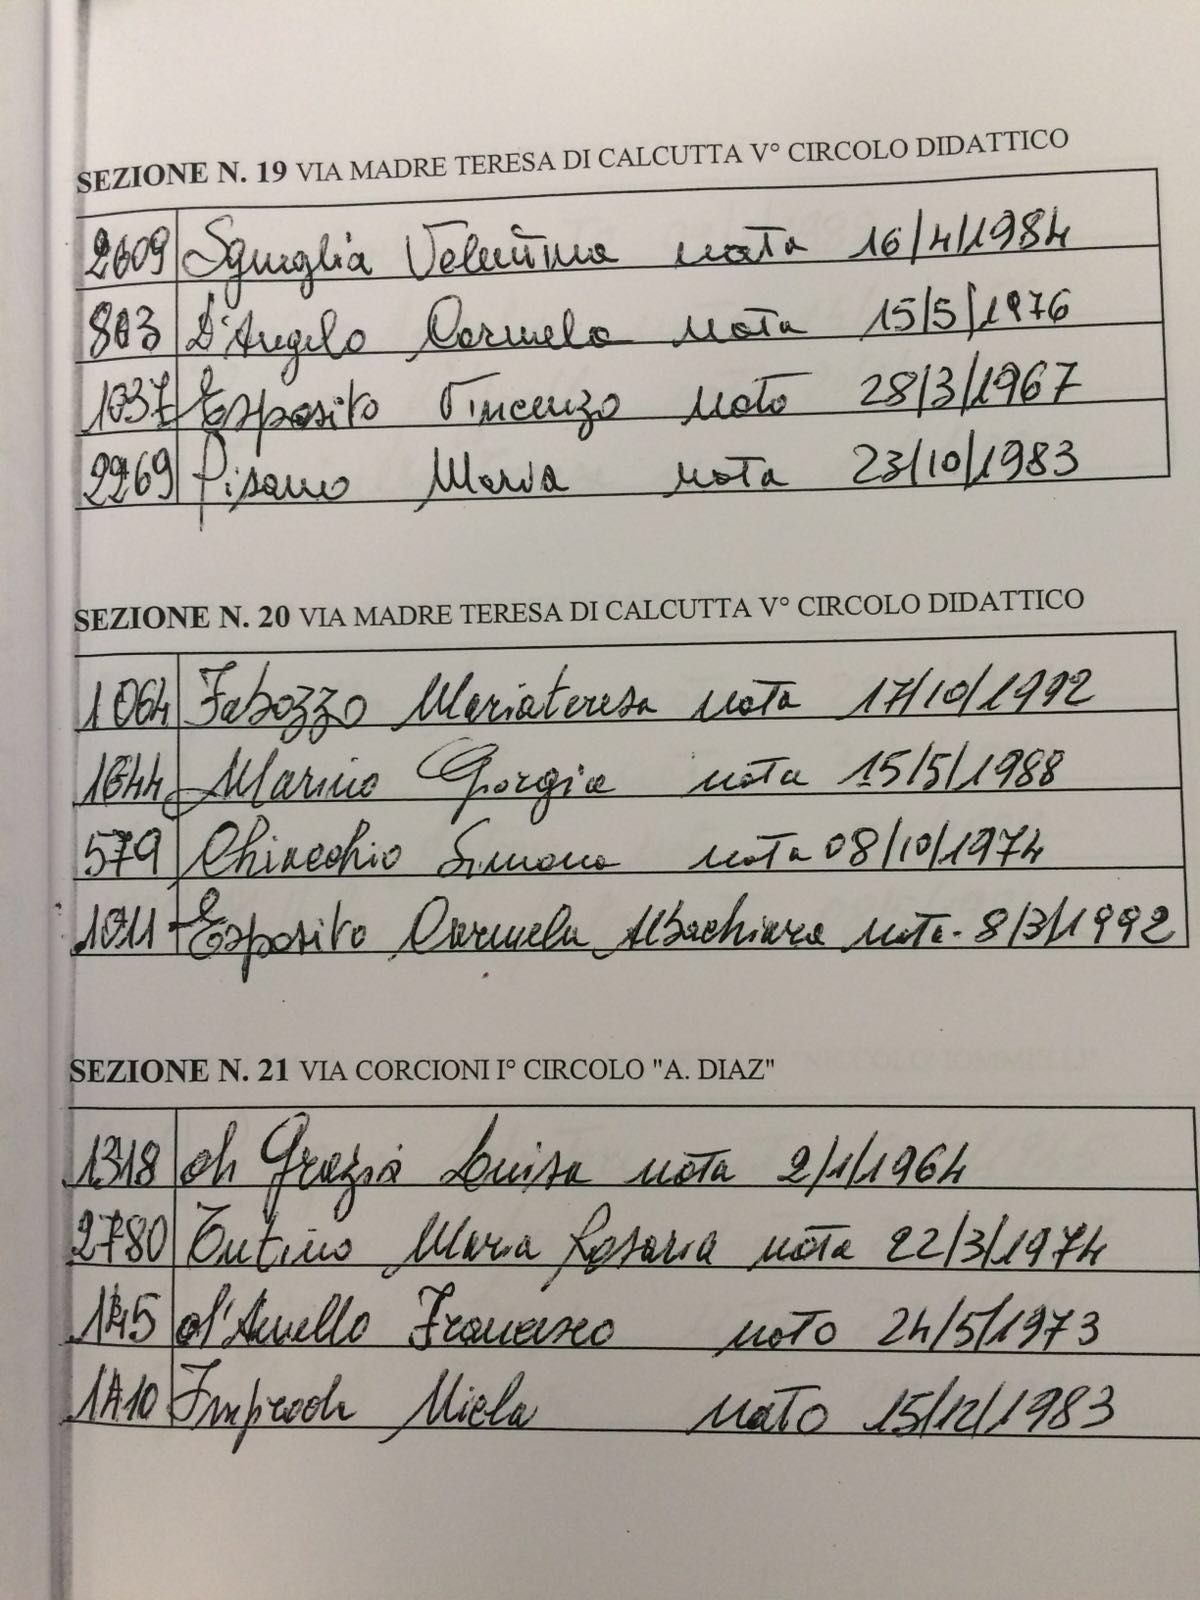 SEZIONE N. 19 VIA MADRE TERESA DI CALCUTTA V° CIRCOLO DIDATTICO
2609 Squeglia Valentina nata 16/4/1984
803 D'Angelo Carmela nata 15/5/1976
1037 Esposito Vincenzo nato 28/3/1967
2269 Pisano Maria nata 23/10/1983
SEZIONE N. 20 VIA MADRE TERESA DI CALCUTTA V° CIRCOLO DIDATTICO
1064 Fabozzo Mariateresa nata 17/10/1992
1644 Marino Giorgia nata 15/5/1988
579 Chiacchio Simona nata 08/10/1974
1011 Esposito Carmela Albachiara nata 8/3/1992
SEZIONE N. 21 VIA CORCIONI I° CIRCOLO "A. DIAZ"
1318 di Grazia Luisa nata 2/1/1964
2780 Tutino Maria Rosaria nata 22/3/1974
d'Aniello Francesco nato 24/5/1973
1410 Improda nato 15/12/1983